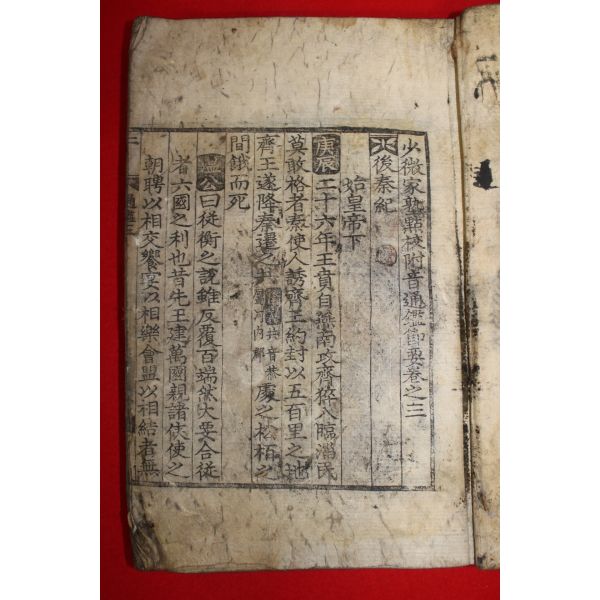 少微家塾點校附音通鑑節要卷之三
後秦紀
始皇帝下
庚辰二十六年王賁自燕南攻齊猝入臨淄民
莫敢格者秦使人誘齊王約封以五百里之地
齊王遂降秦遷之共共音恭屬河內郡處之松栢之
間餓而死
溫公曰從衡之說雖反覆百端然大要合從
者六國之利也昔先王建萬國親諸侯使之
朝聘以相交饗宴以相樂會盟以相結者無